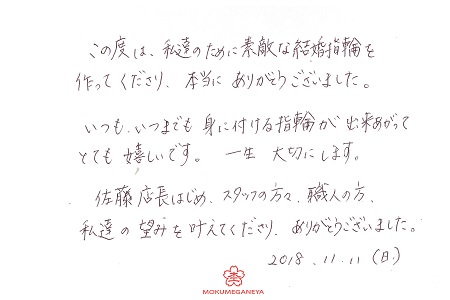 この度は、私達のために素敵な結婚指輪を
作ってくださり、本当にありがとうございました。
いつも、いつまでも身に付ける指輪が出来あがって
とても嬉しいです。一生大切にします。
佐藤店長はじめ、スタッフの方々、職人の方、
私達の望みを叶えてくださり、ありがとうございました。
2018.11.11（日）
MOKUMEGANEYA